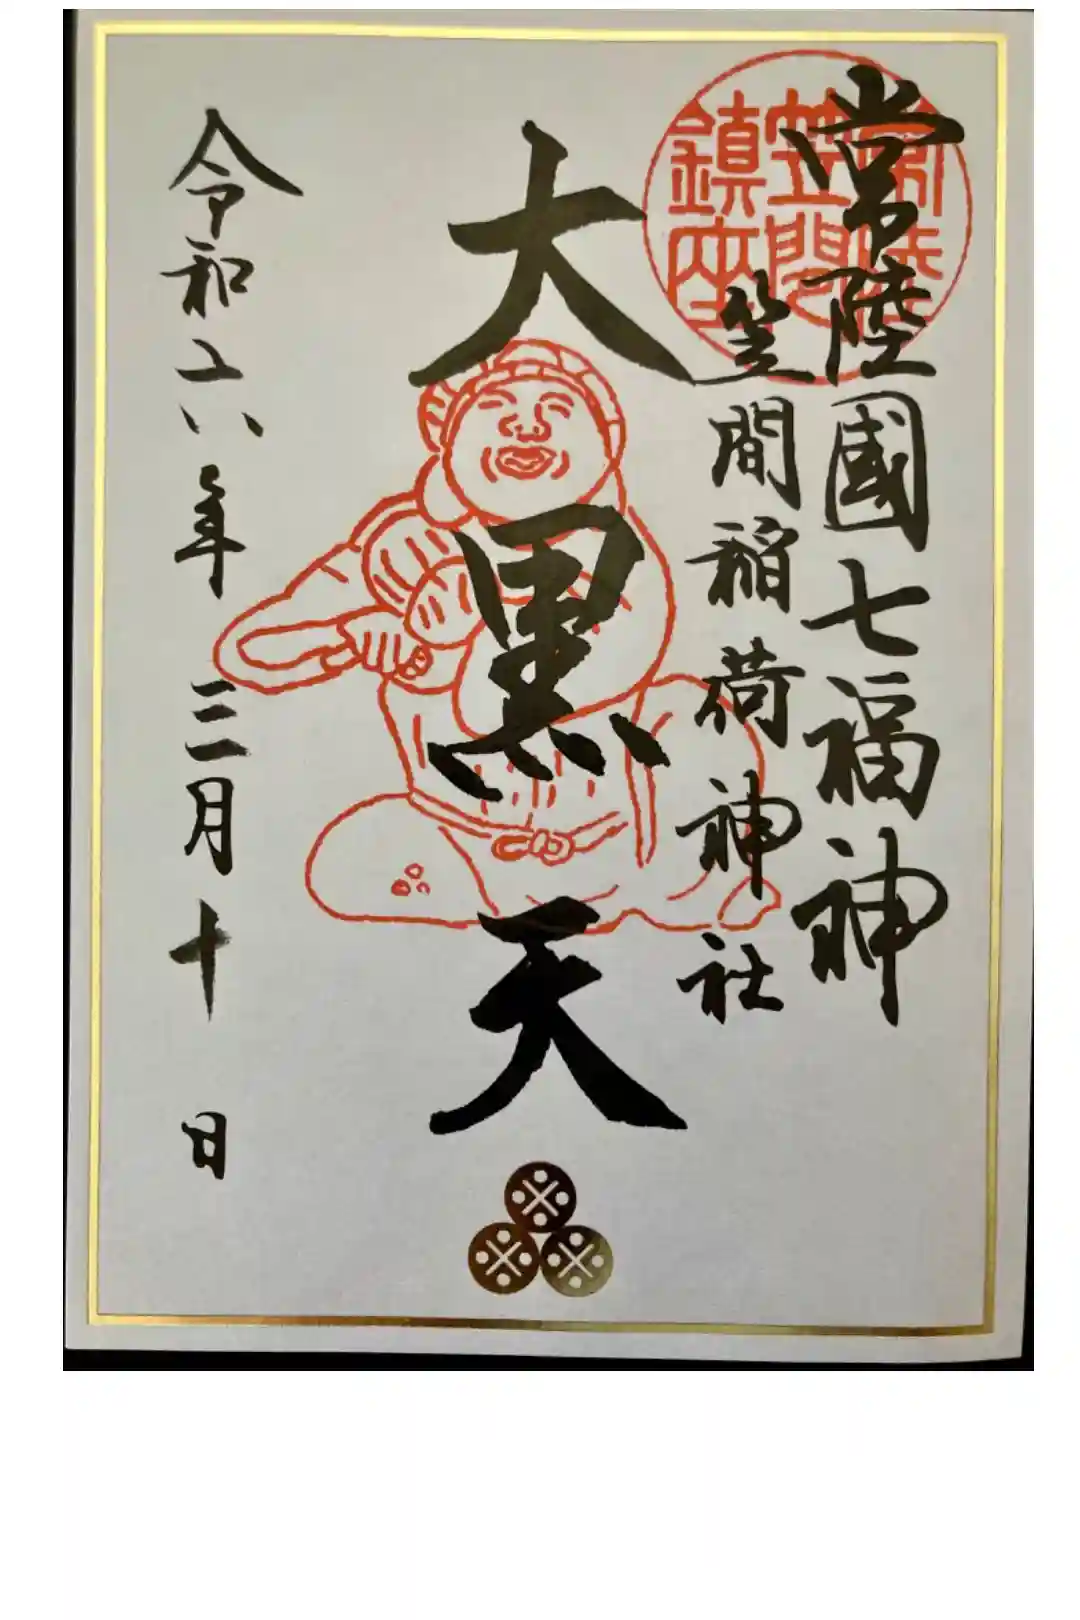 常陸國七福神
笠間稲荷神社
常陸
笠間
鎮座
大黒天
令和六年三月十日